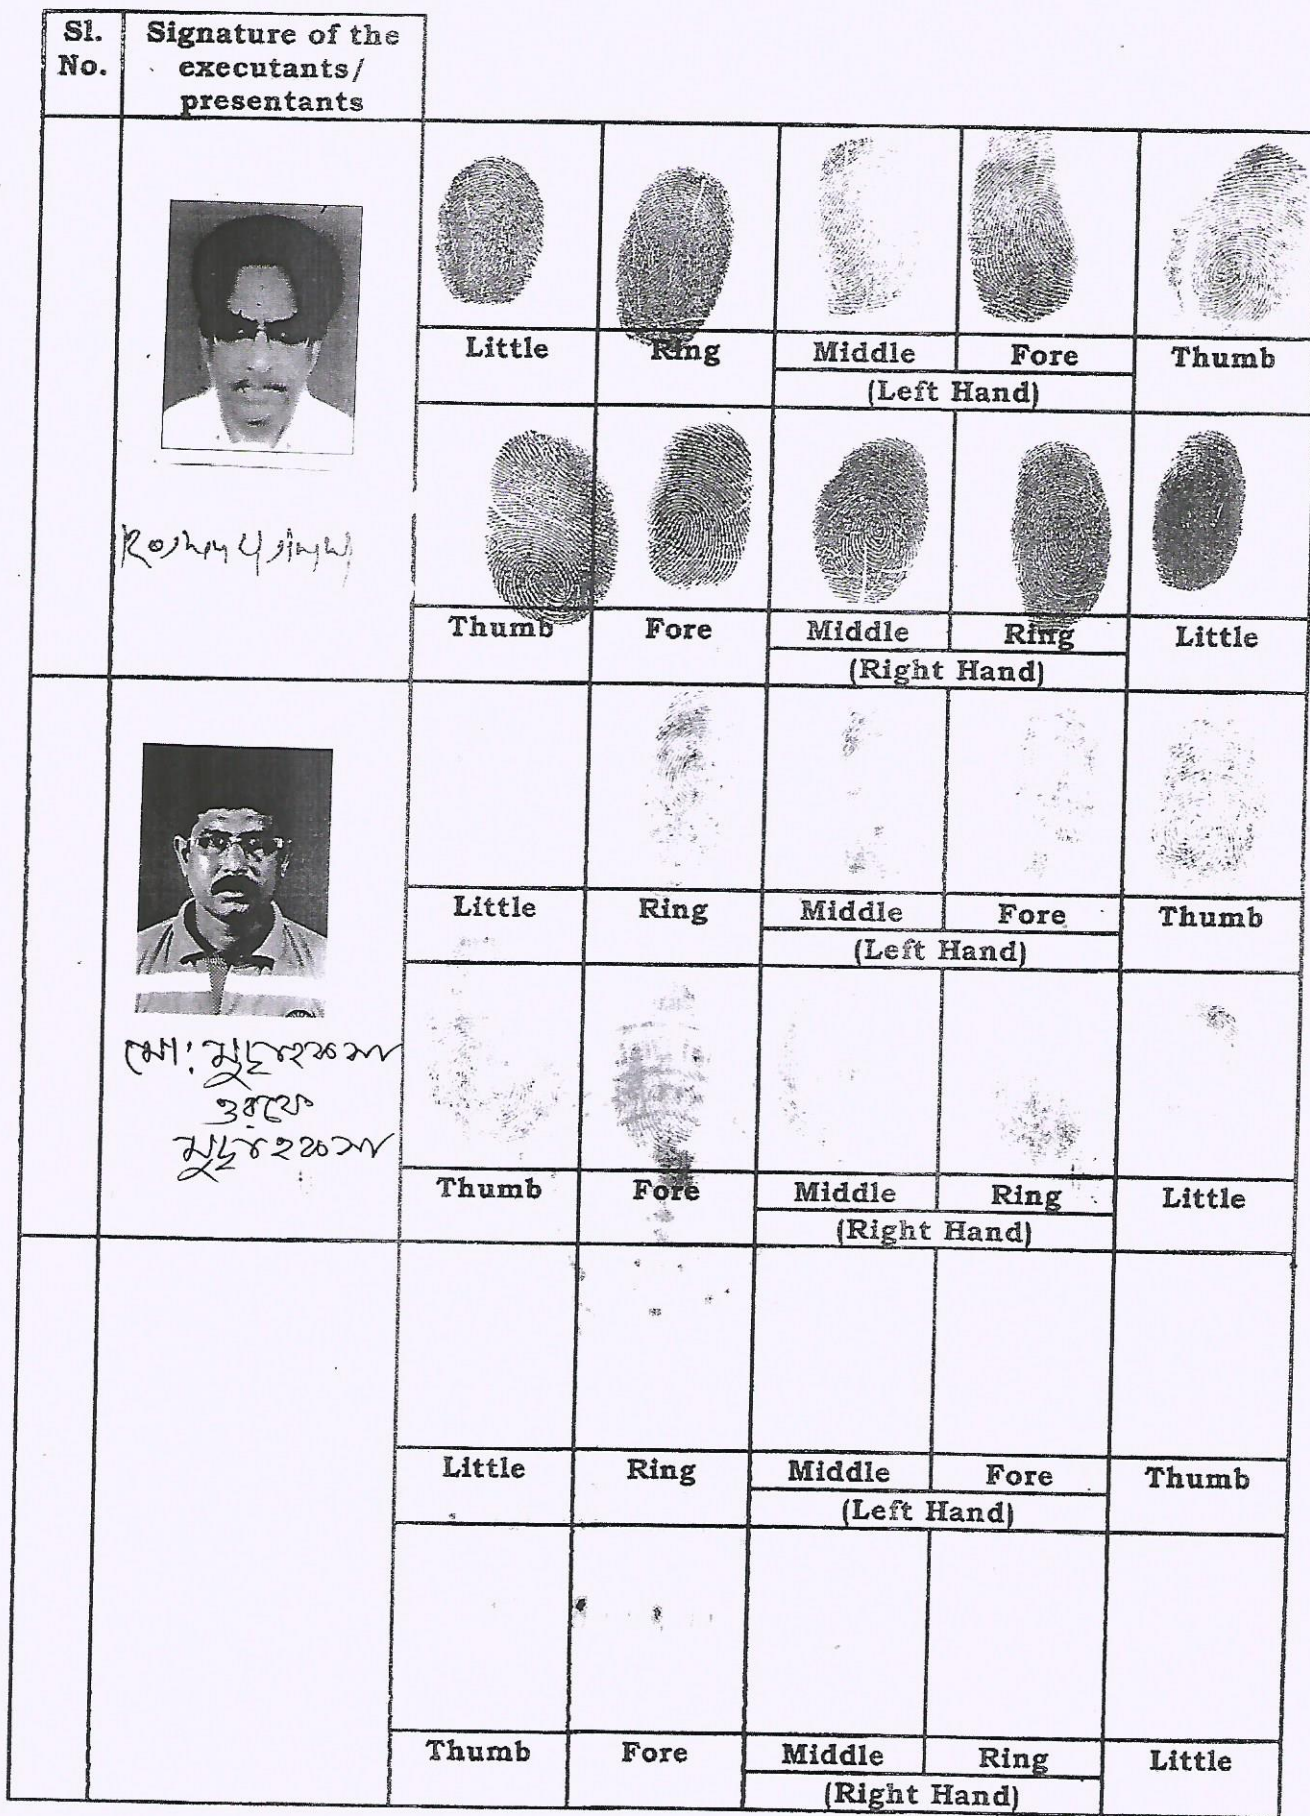 Sl. No.
Signature of the executants/ presentants
Little Ring Middle Fore Thumb
(Left Hand)
Thumb Fore Middle Ring Little
(Right Hand)
Little Ring Middle Fore Thumb
(Left Hand)
মো:
ওরফে
Thumb Fore Middle Ring Little
(Right Hand)
Little Ring Middle Fore Thumb
(Left Hand)
Thumb Fore Middle Ring Little
(Right Hand)